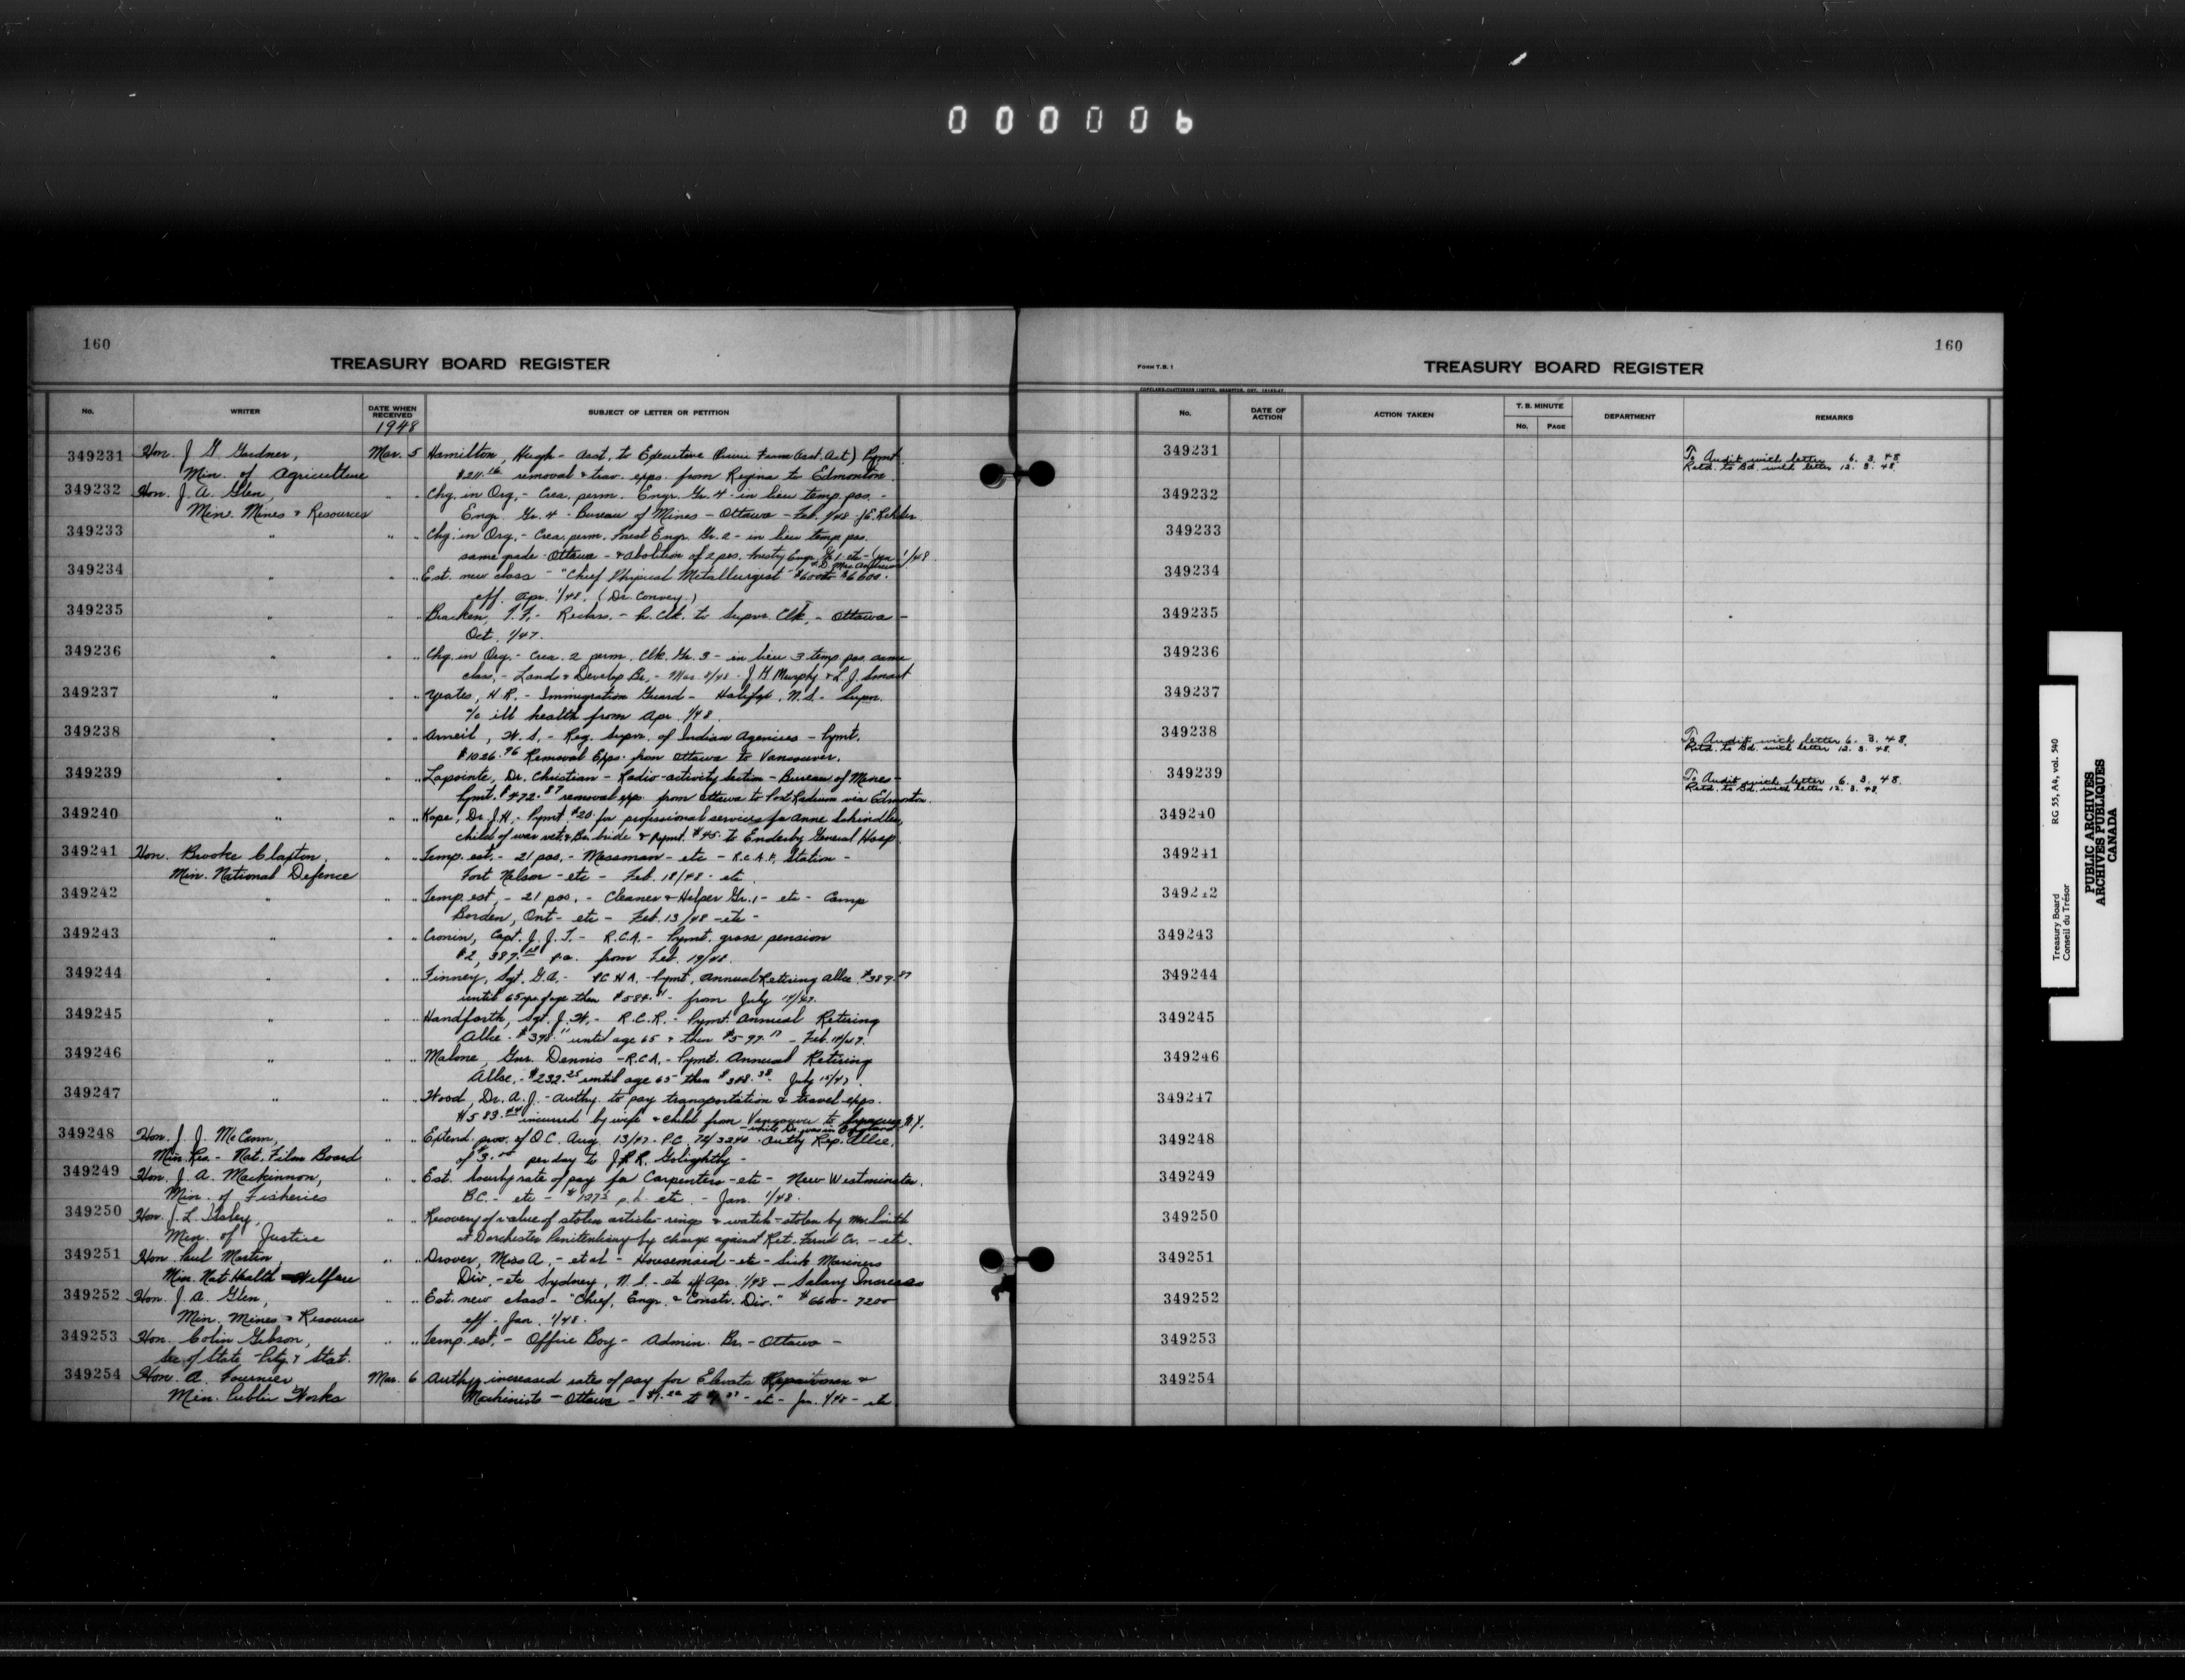 000006
160
TREASURY BOARD REGISTER
No. WRITER DATE WHEN RECEIVED SUBJECT OF LETTER OR PETITION
1948
349231 Hon. J. G. Gardner, Mar. 5 Hamilton, Hugh - Asst. to Executive (Prairie Farm Asst. Act) Pymt.
Min. of Agriculture $211.16 removal & trav. exps. from Regina to Edmonton.
349232 Hon. J. A. Glen, " " Chg. in Org. - Crea. perm. Engr. Gr. 4 - in lieu temp. pos. -
Min. Mines & Resources Engr. Gr. 4 - Bureau of Mines - Ottawa - Feb. 1/48 - J.E. Rehder
349233 " " " Chg. in Org. - Crea. perm. Forest Engr. Gr. 2 - in lieu temp. pos.
same grade - Ottawa - & abolition of 2 pos. Foresty Engr. Gr. 1 - etc - Jan 1/48.
349234 " " " Est. new class - "Chief Physical Metallurgist - $6000 to $6600.
eff. Apr. 1/48. (Dr. Convey.)
349235 " " " Bracken, - Reclass. - Pr. Clk. to Supvr. Clk. - Ottawa -
Oct. 1/47.
349236 " " " Chg. in Org. - Crea. 2 perm. Clk. Gr. 3 - in lieu 3 temp. pos. same
class. - Lands & Develop Br. - Mar. J. G. Murphy & L. J. Smart
349237 " " " Yeates, H. R. - Immigration Guard - Halifax, N.S. - Supn.
a/c ill health from Apr. 1/48.
349238 " " " Arneil, W. S. - Reg. Supvr. of Indian Agencies - Pymt.
$1026.96 Removal Exps. from Ottawa to Vancouver.
349239 " " " Lapointe, Dr. Christian - Radio-activity Section - Bureau of Mines -
Pymt. $472.87 removal exps. from Ottawa to Port Radium via Edmonton.
349240 " " " Kope, Dr. J.H. - Pymt. $20. for professional services for Anne Schindler,
child of war vet. & Br. bride & Pymt. $45. to Enderby General Hosp.
349241 Hon. Brooke Claxton, " " Temp. est. - 21 pos. - Messman - etc - R.C.A.F. Station -
Min. National Defence Fort Nelson - etc - Feb. 18/48 - etc.
349242 " " " Temp. est. - 21 pos. - Cleaner & Helper Gr. 1 - etc - Camp
Borden, Ont - etc - Feb. 13/48 - etc -
349243 " " " Cronin, Capt. J. J. T. - R.C.A. - Pymt. gross pension
$2,387. p.a. from Feb. 19/48.
349244 " " " Finney, Sgt. G.A. - R.C.H.A. - Pymt. Annual Retiring Allce. $389.87
until 65 yrs of age then $584.81 - from July
349245 " " " Handforth, Sgt. J. W. - R.C.R. - Pymt. Annual Retiring
Allce - $398.11 until age 65 & then $597.17 - Feb.
349246 " " " Malone, Gnr. Dennis - R.C.A. - Pymt. Annual Retiring
Allce. - $232.25 until age 65 then $348.38 - July 15/47.
349247 " " " Wood, Dr. A. J. - Authy. to pay transportation & travel exps.
$583.44 incurred by wife & child from Vancouver to Syracuse N.Y.
while Dr. was in England
349248 Hon. J. J. McCann, " " Extend. prov. of O.C. Aug. 13/47 - P.C. 72/3240 - Authy Rep. Allce.
Min. Res. - Nat. Film Board of $3.00 per day to J.P.R. Golightly -
349249 Hon. J. A. MacKinnon, " " Est. hourly rate of pay for Carpenters - etc - New Westminster,
Min. of Fisheries B.C. - etc - p.h. etc. - Jan. 1/48.
349250 Hon. J. L. Ilsley, " " Recovery of value of stolen articles - rings & watch - stolen by Mr. Smith
Min. of Justice at Dorchester Penitentiary by charge against Ret. Fund Cr. - etc.
349251 Hon. Paul Martin, " " Drover, Miss A. - et al - Housemaid - etc - Sick Mariners
Min. Nat. Health & Welfare Div. - etc Sydney, N.S. - etc eff Apr. 1/48 - Salary Increases
349252 Hon. J. A. Glen, " " Est. new class - "Chief, Engr. & Constr. Div." $6600 - 7200
Min. Mines & Resources eff - Jan. 1/48.
349253 Hon. Colin Gibson, " " Temp. est. - Office Boy - Admin. Br. - Ottawa -
Sec. of State - Ptg. & Stat.
349254 Hon. A. Fournier, Mar. 6 Authy. increased rates of pay for Elevator Repairmen &
Min. Public Works Machinists - Ottawa - etc - Jan. 1/48 - etc.
160
FORM T.B. 1
TREASURY BOARD REGISTER
No. DATE OF ACTION ACTION TAKEN T. B. MINUTE No. PAGE DEPARTMENT REMARKS
349231 To Audit with letter 6. 3. 48
Retd. to Bd. with letter 12. 3. 48.
349232
349233
349234
349235
349236
349237
349238 To Audit with letter 6. 3. 48.
Retd. to Bd. with letter 12. 3. 48.
349239 To Audit with letter 6. 3. 48.
Retd. to Bd. with letter 12. 3. 48
349240
349241
349242
349243
349244
349245
349246
349247
349248
349249
349250
349251
349252
349253
349254
Treasury Board RG 55, A4, vol. 540
Conseil du Trésor
PUBLIC ARCHIVES
ARCHIVES PUBLIQUES
CANADA